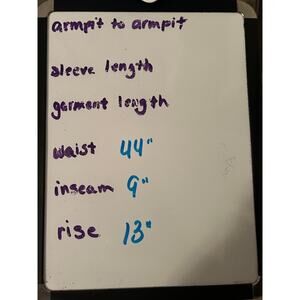 armpit to armpit
sleeve length
garment length
waist 44"
inseam 9"
rise 13"